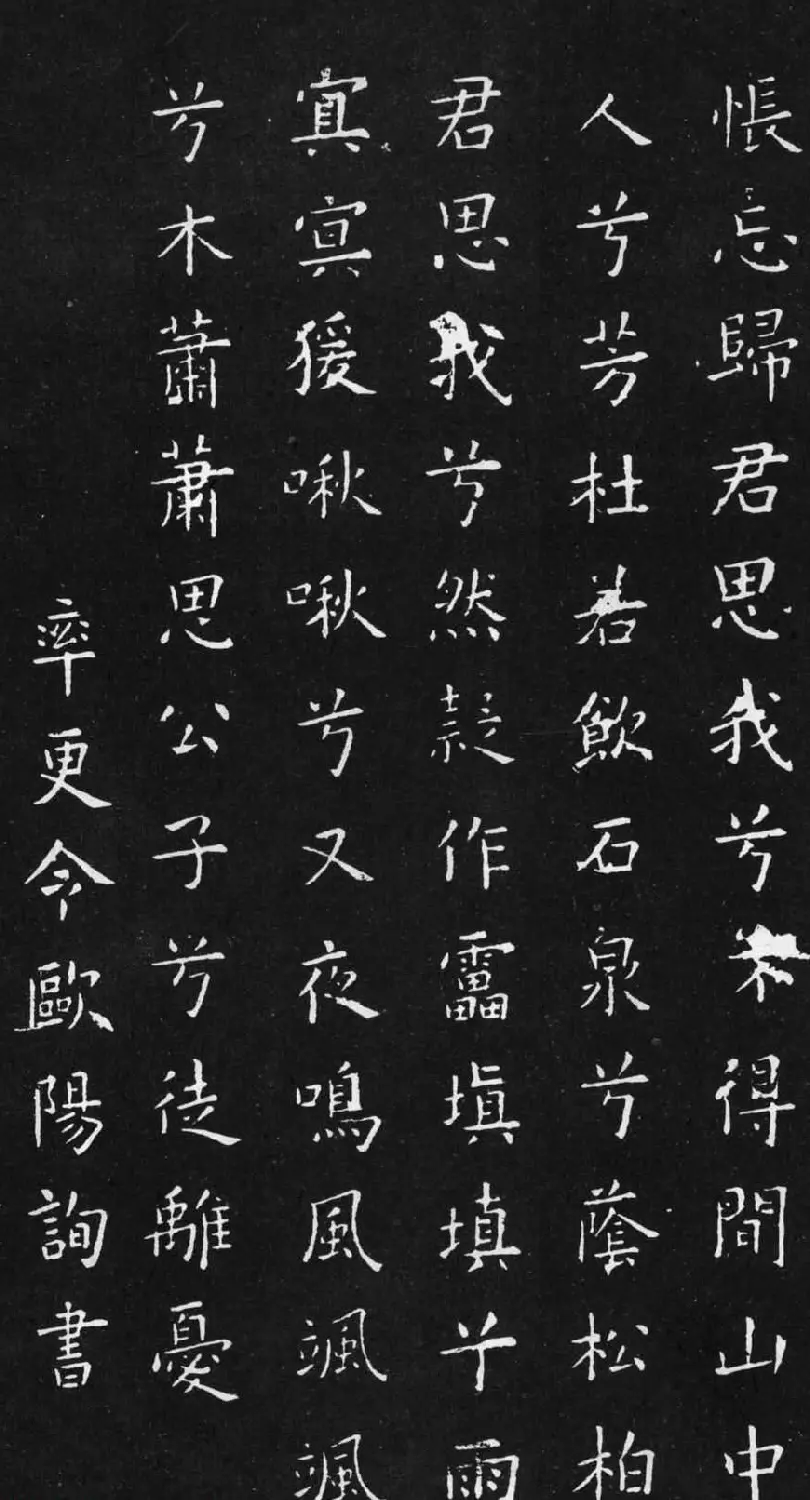 悵忘歸君思我兮不得間山中
人兮芳杜若飲石泉兮蔭松柏
君思我兮然疑作靁填填兮雨
寘寘猨啾啾兮又夜鳴風颯颯
兮木蕭蕭思公子兮徒離憂
率更令歐陽詢書